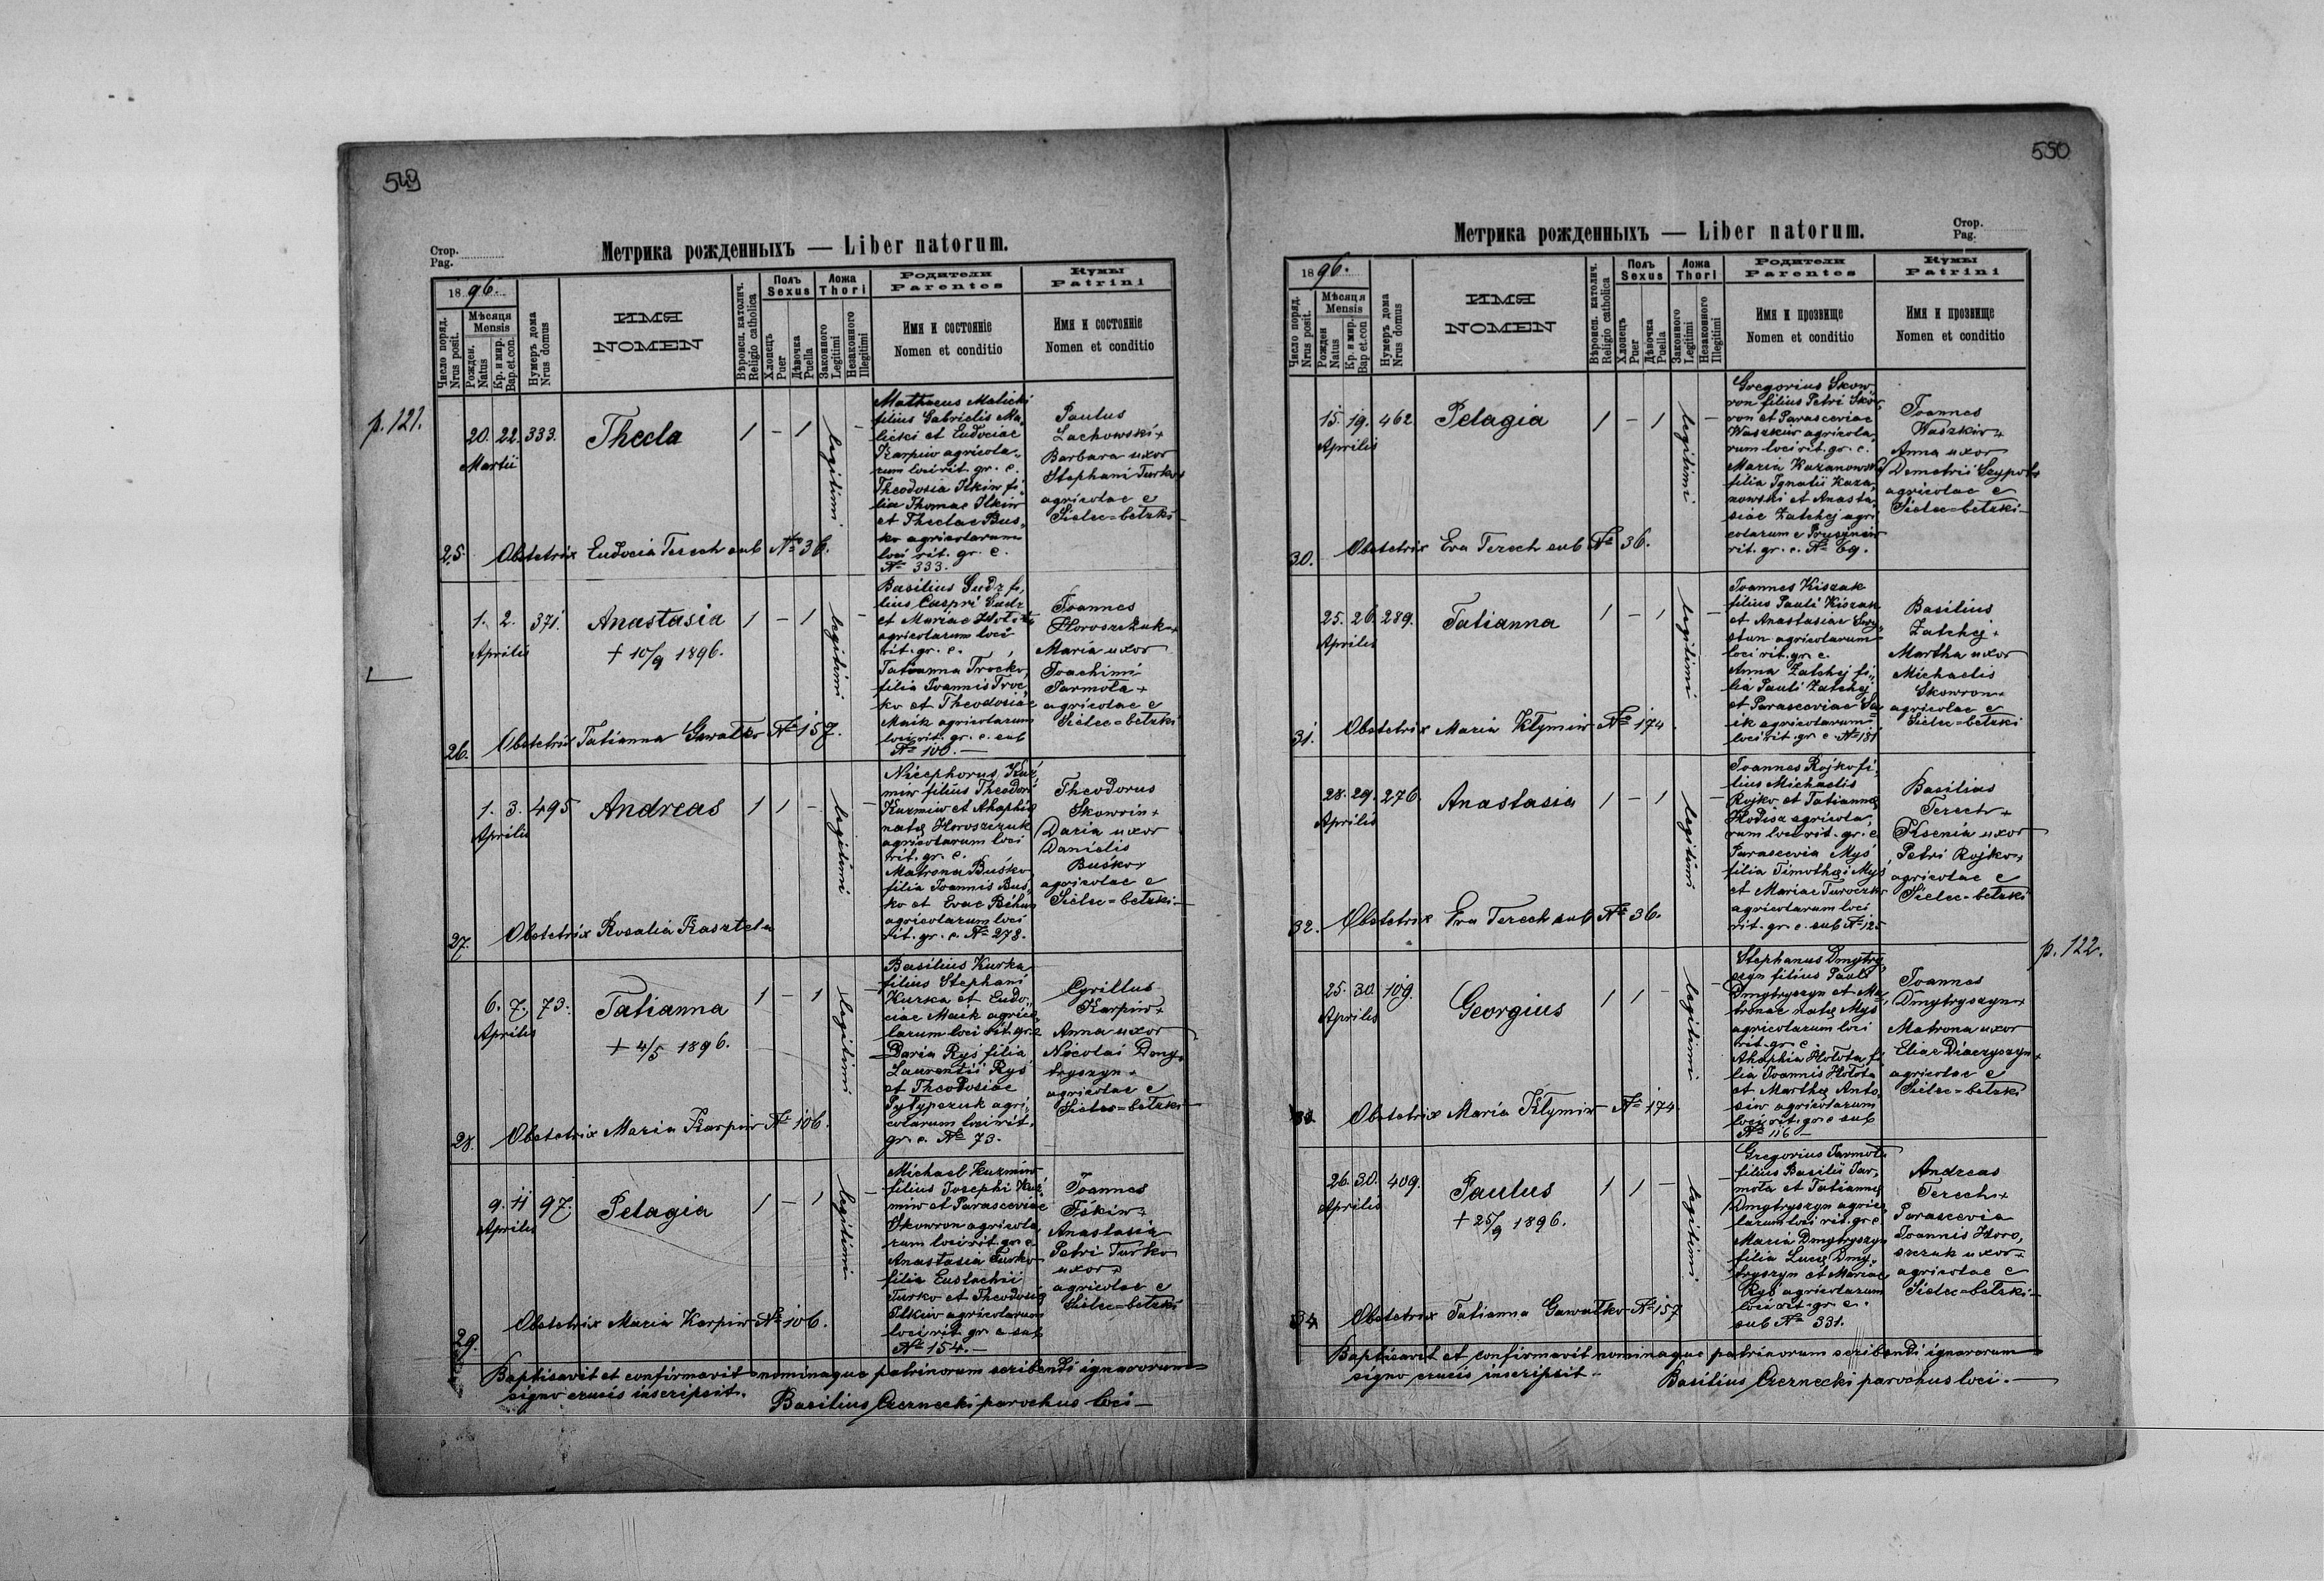 549
Стор.
Pag.
Метрика рожденныхъ — Liber natorum.
1896.
Число поряд.
Nrus posit.
Мѣсяця
Mensis
Рожден.
Natus
Кр. и мир.
Bap.et.con.
Нумеръ дома
Nrus domus
ИМЯ
NOMEN
Вѣроисп. католич.
Religio catholica
Полъ
Sexus
Хлопецъ
Puer
Дѣвочка
Puella
Ложа
Thori
Законного
Legitimi
Незаконного
Illegitimi
Родители
Parentes
Имя и состоянiе
Nomen et conditio
Кумы
Patrini
Имя и состоянiе
Nomen et conditio
p. 121.
25.
20. 22. 333.
Martii
Thecla
1 - 1
legitimi
-
Mathaeus Malicki
filius Gabrielis Ma„
licki et Eudociae
Karpiw agricola„
rum loci rit. gr. c.
Theodosia Ilkiw fi„
lia Thomae Ilkiw
et Theclae Bus„
ko agricolarum
loci rit. gr. c.
№ 333.
Paulus
Lachowski +
Barbara uxor
Stephani Turko +
agricolae e
Sielec=bełzki
Obstetrix Eudocia Terech sub № 36.
26.
1. 2. 371.
Aprilis
Anastasia
+ 10/9 1896.
1 - 1
legitimi
-
Basilius Gudz fi„
lius Caspri Gudz
et Mariae Hołota
agricolarum loci
rit. gr. c.
Tatianna Trocko,
filia Joannis Troc„
ko et Theodosiae
Maik agricolarum
loci rit. gr. c. sub
№ 100. —
Joannes
Horoszczuk +
Maria uxor
Joachimi
Jarmoła +
agricolae e
Sielec=bełzki
Obstetrix Tatianna Gawałko № 157.
27.
1. 3. 495
Aprilis
Andreas
1 1 -
legitimi
-
Nicephorus Kuź„
miw filius Theodori
Kuzmiw et Ahaphię
natę Horoszczuk
agricolarum loci
rit. gr. c.
Matrona Buśko
filia Joannis Buś„
ko et Evae Bihun
agricolarum loci
rit. gr. c. № 278.
Theodorus
Skowrin +
Daria uxor
Danielis
Buśko +
agricolae e
Sielec=bełzki —
Obstetrix Rosalia Kasztela
28.
6. 7. 73.
Aprilis
Tatianna
+ 4/5 1896.
1 - 1
legitimi
-
Basilius Kurka
filius Stephani
Kurka et Eudo„
ciae Maik agrico„
larum loci rit. gr. c
Daria Ryś filia
Laurentii Ryś
et Theodosiae
Pyłypczuk agri„
colarum loci rit.
gr. c. № 73.
Cyrillus
Karpiw +
Anna uxor
Nicolai Dmy„
tryszyn +
agricolae e
Sielec=bełzki
Obstetrix Maria Karpiw № 106.
29.
9. 11 97.
Aprilis
Pelagia
1 - 1
legitimi
-
Michael Kuzmiw
filius Josephi Kuź„
miw et Parasceviae
Skowron agricola
rum loci rit. gr. c
Anastasia Turko
filia Eustachii
Turko et Theodosię
Ilkiw agricolarum
loci rit. gr. c sub
№ 154. —
Joannes
Iśkiw +
Anastasia
Petri Turko
uxor +
agricolae e
Sielec=bełzki
Obstetrix Maria Karpiw № 106.
Baptisavit et confirmavit nominaque patrinorum scribendi ignarorum
signo crucis inscripsit. Basilius Czernecki parochus loci —
550
Стор.
Pag.
Метрика рожденныхъ — Liber natorum.
1896.
Число поряд.
Nrus posit.
Мѣсяця
Mensis
Рожден
Natus
Кр. и мир.
Bap et.con
Нумеръ дома
Nrus domus
ИМЯ
NOMEN
Вѣроисп. католич.
Religio catholica
Полъ
Sexus
Хлопецъ
Puer
Дѣвочка
Puella
Ложа
Thori
Законного
Legitimi
Незаконного
Illegitimi
Родители
Parentes
Имя и прозвище
Nomen et conditio
Кумы
Patrini
Имя и прозвище
Nomen et conditio
30.
15. 19. 462
Aprilis
Pelagia
1 - 1
legitimi
-
Gregorius Skow„
ron filius Petri Skow„
ron et Parasceviae
Waszkiw agricola„
rum loci rit. gr. c.
Maria Kazanowska
filia Ignatii Kaza„
nowski et Anasta„
siae Zatchej agri
colarum e Prusinów
rit. gr. c. № 69.
Joannes
Waszkiw +
Anna uxor
Demetrii Szypot +
agricolae e
Sielec=bełzki —
Obstetrix Eva Terech sub № 36.
31.
25. 26. 289.
Aprilis
Tatianna
1 - 1
legitimi
-
Joannes Kiszak
filius Pauli Kiszak
et Anastasiae Sory„
stun agricolarum
loci rit. gr. c.
Anna Zatchej fi„
lia Pauli Zatchej
et Parasceviae Sa„
ik agricolarum
loci rit. gr c № 181
Basilius
Zatchej +
Martha uxor
Michaelis
Skowron +
agricolae e
Sielec=bełzki
Obstetrix Maria Kłymiw № 174.
32.
28. 29. 276.
Aprilis
Anastasia
1 - 1
legitimi
-
Joannes Rojko fi„
lius Michaelis
Rojko et Tatiannę
Hłodisz agricola„
rum loci rit. gr. c
Parascevia Myś
filia Timothei Myś
et Mariae Turoczko
agricolarum loci
rit. gr. c. sub № 125
Basilius
Terech +
Ksenia uxor
Petri Rojko +
agricolae e
Sielec=bełzki
Obstetrix Eva Terech sub № 36.
p. 122.
25. 30. 109.
Aprilis
Georgius
1 1 -
legitimi
-
Stephanus Dmytry„
szyn filius Pauli
Dmytryszyn et Ma„
tronae natę Myś
agricolarum loci
rit. gr. c.
Ahaphia Hołota fi„
lia Joannis Hołota
et Marthę Anto„
siw agricolarum
loci rit. gr. c sub
№ 116 —
Joannes
Dmytryszyn +
Matrona uxor
Eliae Diaczyszyn +
agricolae e
Sielec=bełzki
Obstetrix Maria Kłymiw № 174.
34
26. 30. 409.
Aprilis
Paulus
+ 25/9 1896.
1 1 -
legitimi
-
Gregorius Jarmoła
filius Basilii Jar„
moła et Tatiannę
Dmytryszyn agrico„
larum loci rit. gr. c
Maria Dmytryszyn
filia Lucę Dmy„
tryszyn et Mariae
Ryś agricolarum
loci rit. gr. c.
sub № 331.
Andreas
Terech +
Parascevia
Joannis Horo„
szczuk uxor +
agricolae e
Sielec=bełzki —
Obstetrix Tatianna Gawałko № 157
Baptisavit et confirmavit nominaque patrinorum scribendi ignarorum
signo crucis inscripsit — Basilius Czernecki parochus loci. —